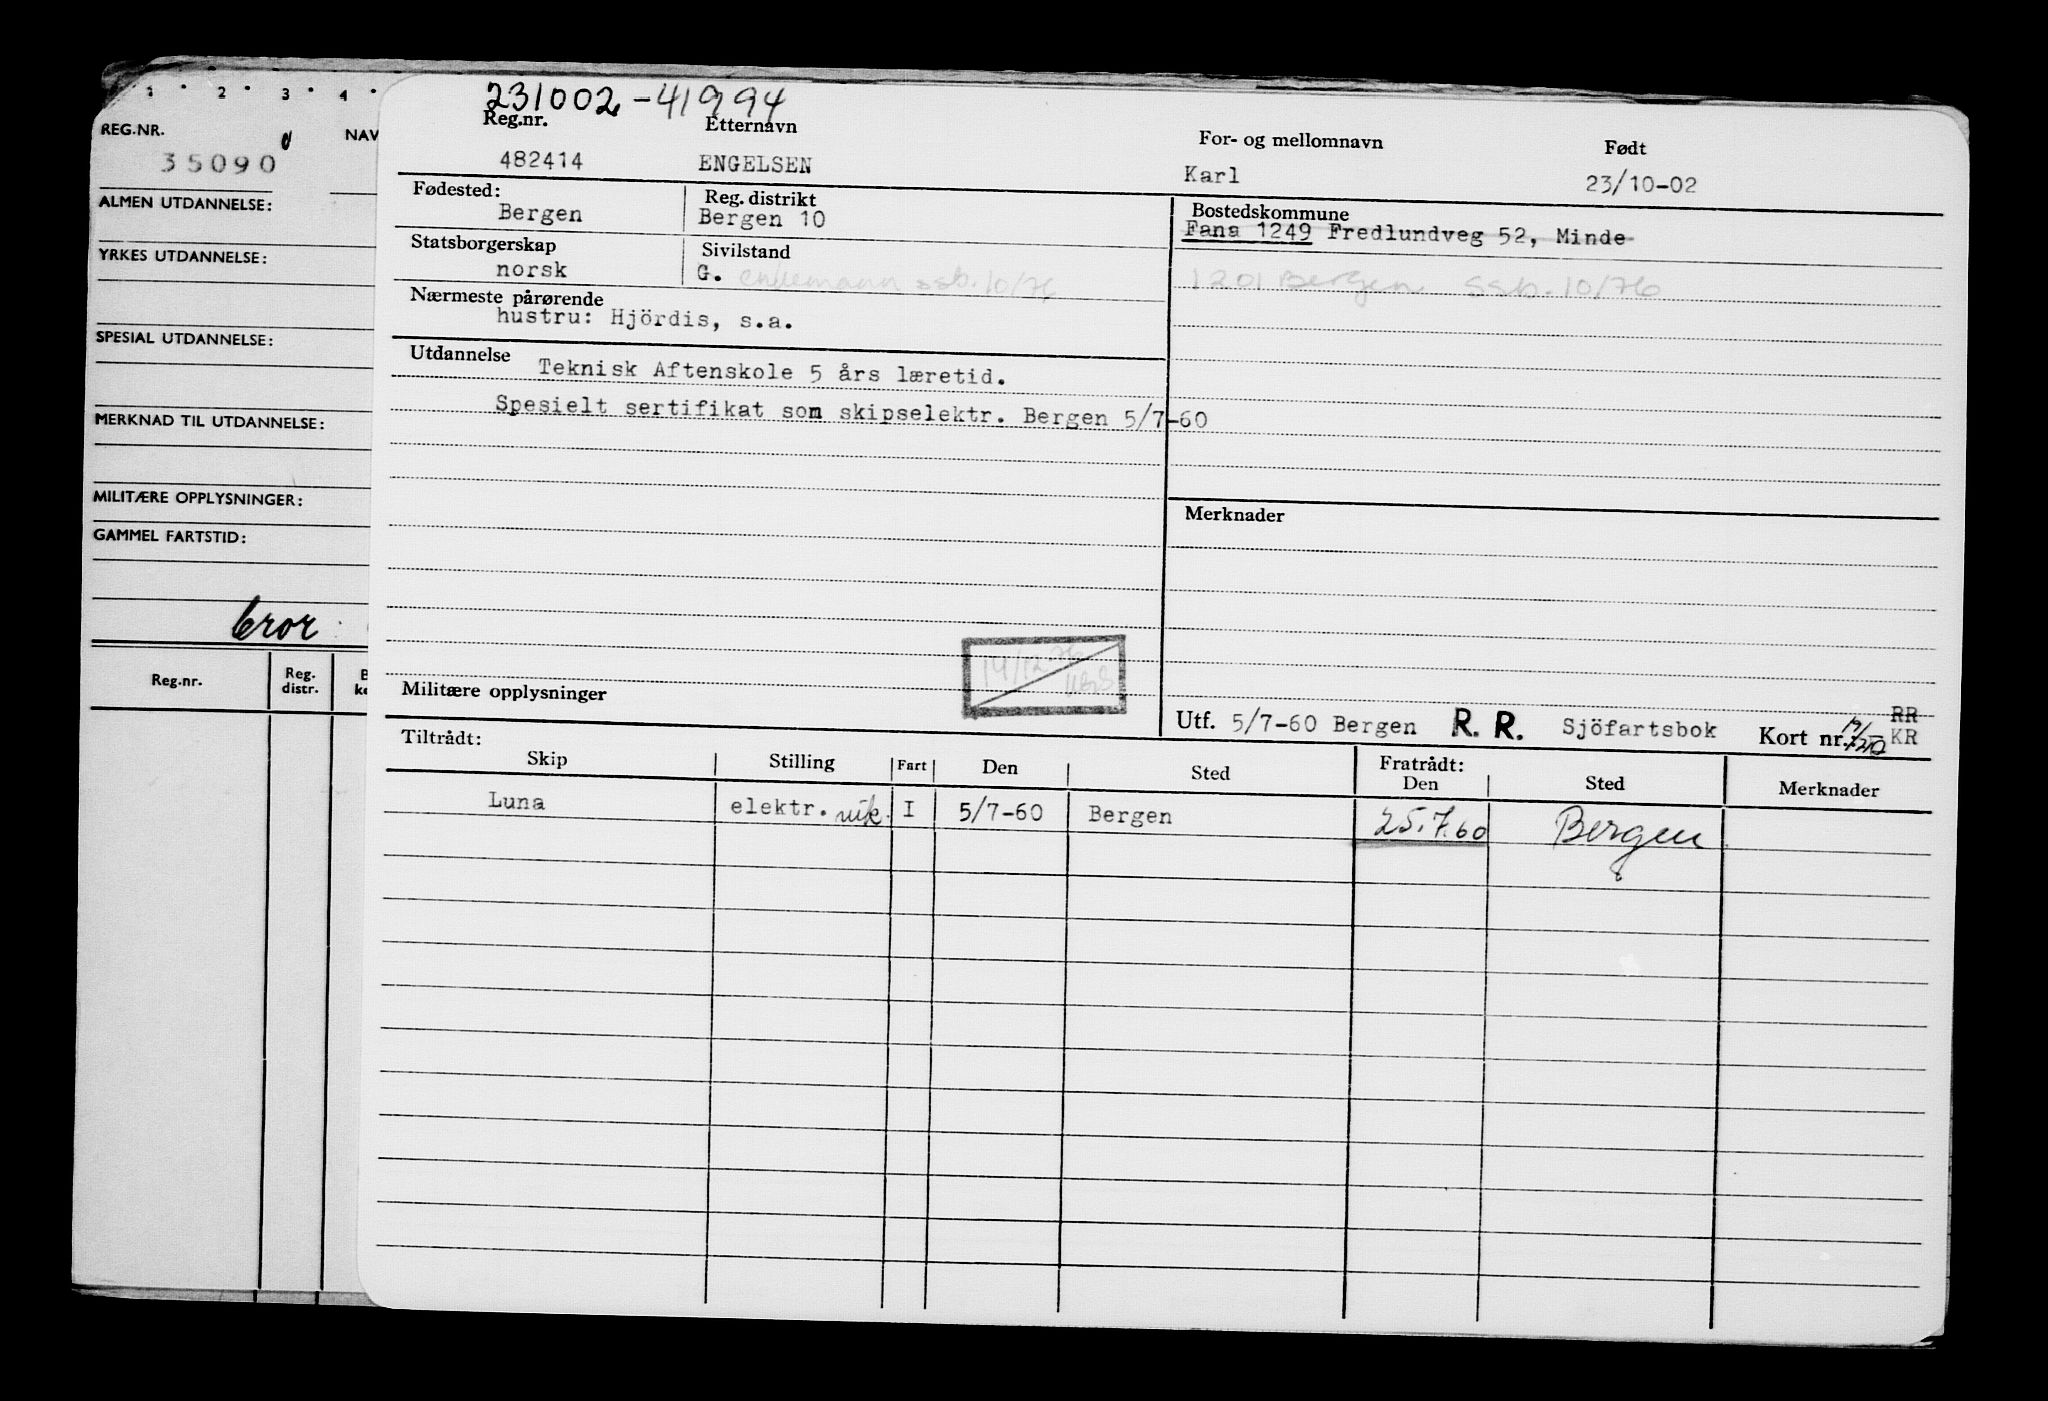 1 . 2 . 3 . 4 .
REG.NR.
NAV
35090
ALMEN UTDANNELSE:
YRKES UTDANNELSE:
SPESIAL UTDANNELSE:
MERKNAD TIL UTDANNELSE:
MILITÆRE OPPLYSNINGER:
GAMMEL FARTSTID:
bror :
Reg.nr. Reg. distr.
231002-41994
Reg.nr. Etternavn For- og mellomnavn Født
482414 ENGELSEN Karl 23/10-02
Fødested: Reg. distrikt Bostedskommune
Bergen Bergen 10 Fana 1249 Fredlundveg 52, Minde
Statsborgerskap Sivilstand
norsk G. enkemann ssb. 10/76 1201 Bergen ssb. 10/76
Nærmeste pårørende
hustru: Hjördis, s.a.
Utdannelse Teknisk Aftenskole 5 års læretid.
Spesielt sertifikat som skipselektr. Bergen 5/7-60
Merknader
14/12 76
Militære opplysninger
Utf. 5/7-60 Bergen R. R. Sjöfartsbok Kort nr. RR KR
Tiltrådt: Fratrådt:
Skip Stilling Fart Den Sted Den Sted Merknader
Luna elektr. vik. I 5/7-60 Bergen 25.7.60 Bergen